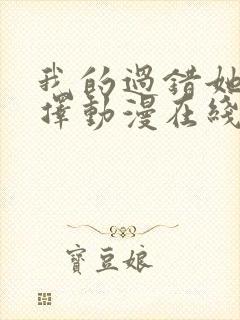 我的過錯她
擇動漫在綫
寶豆娘